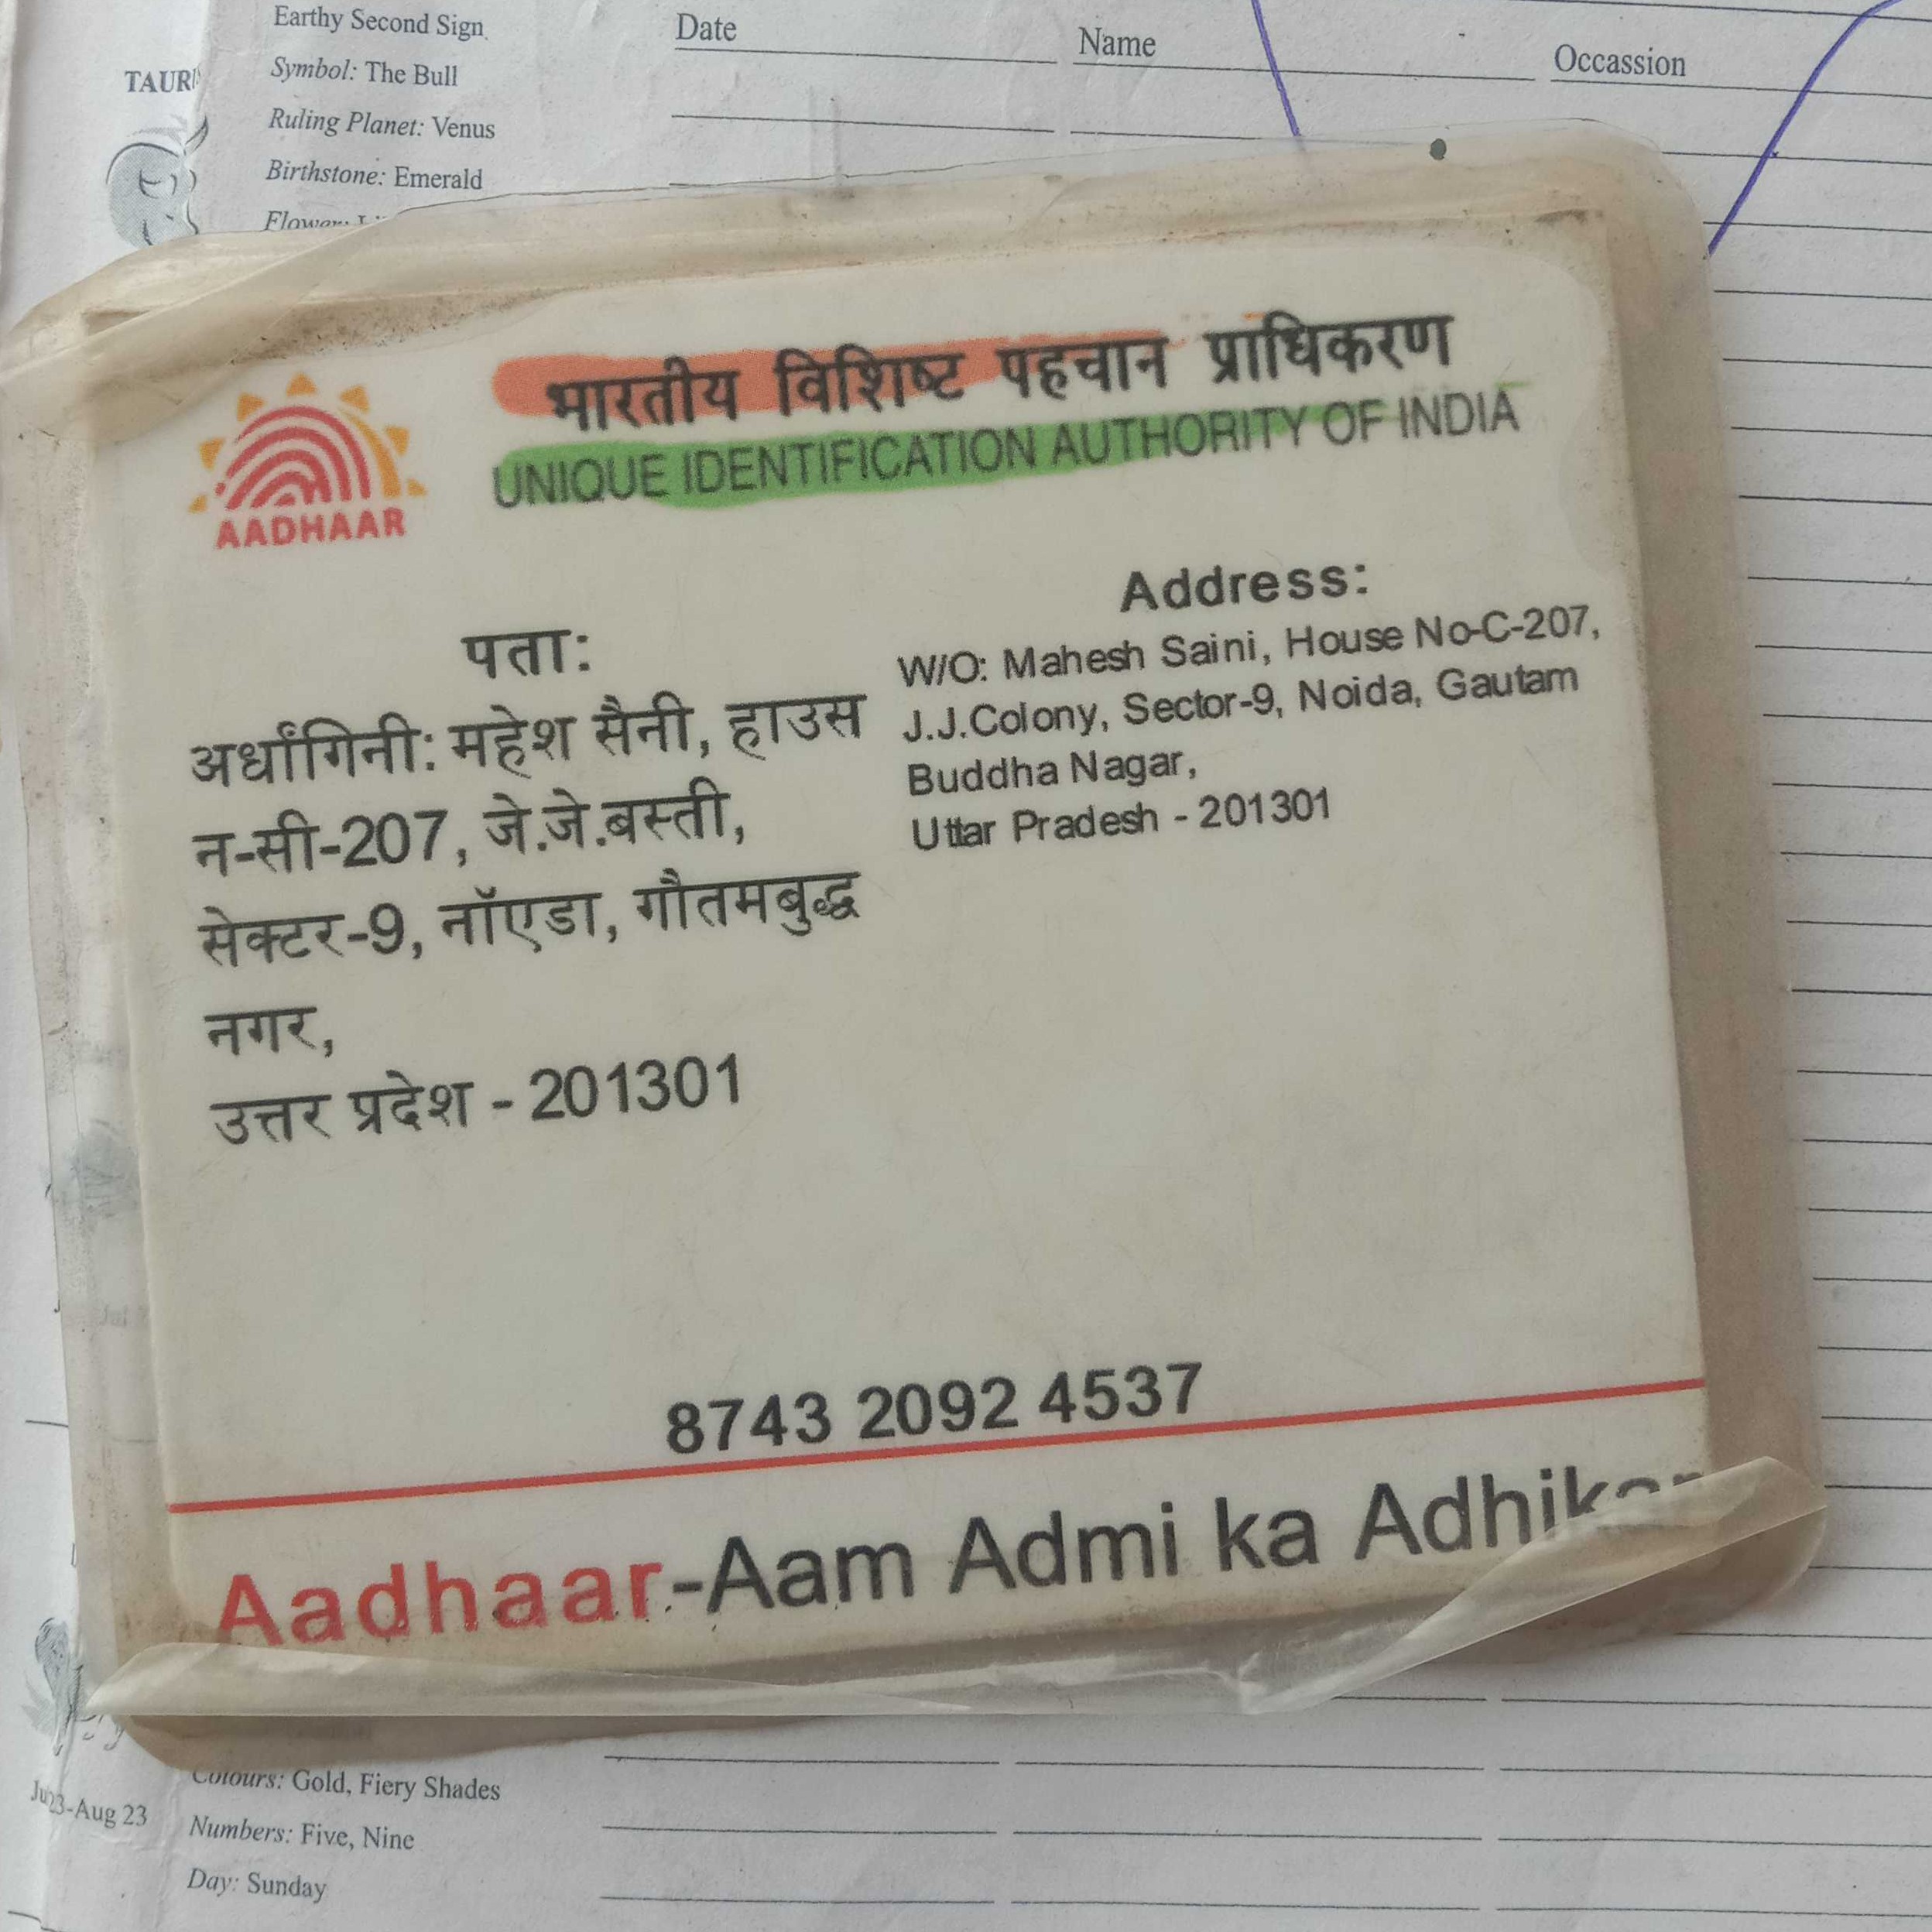 Earthy Second Sign
Symbol: The Bull
Ruling Planet: Venus
Birthstone: Emerald
Date
Name
Occassion
भारतीय विशिष्ट पहचान प्राधिकरण
UNIQUE IDENTIFICATION AUTHORITY OF INDIA
AADHAAR
पता:
अर्धांगिनी: महेश सैनी, हाउस
न-सी-207, जे.जे.बस्ती,
सेक्टर-9, नॉएडा, गौतमबुद्ध
नगर,
उत्तर प्रदेश - 201301
Address:
W/O: Mahesh Saini, House No-C-207,
J.J.Colony, Sector-9, Noida, Gautam
Buddha Nagar,
Uttar Pradesh - 201301
8743 2092 4537
Aadhaar-Aam Admi ka Adhikar
Colours: Gold, Fiery Shades
Numbers: Five, Nine
Day: Sunday